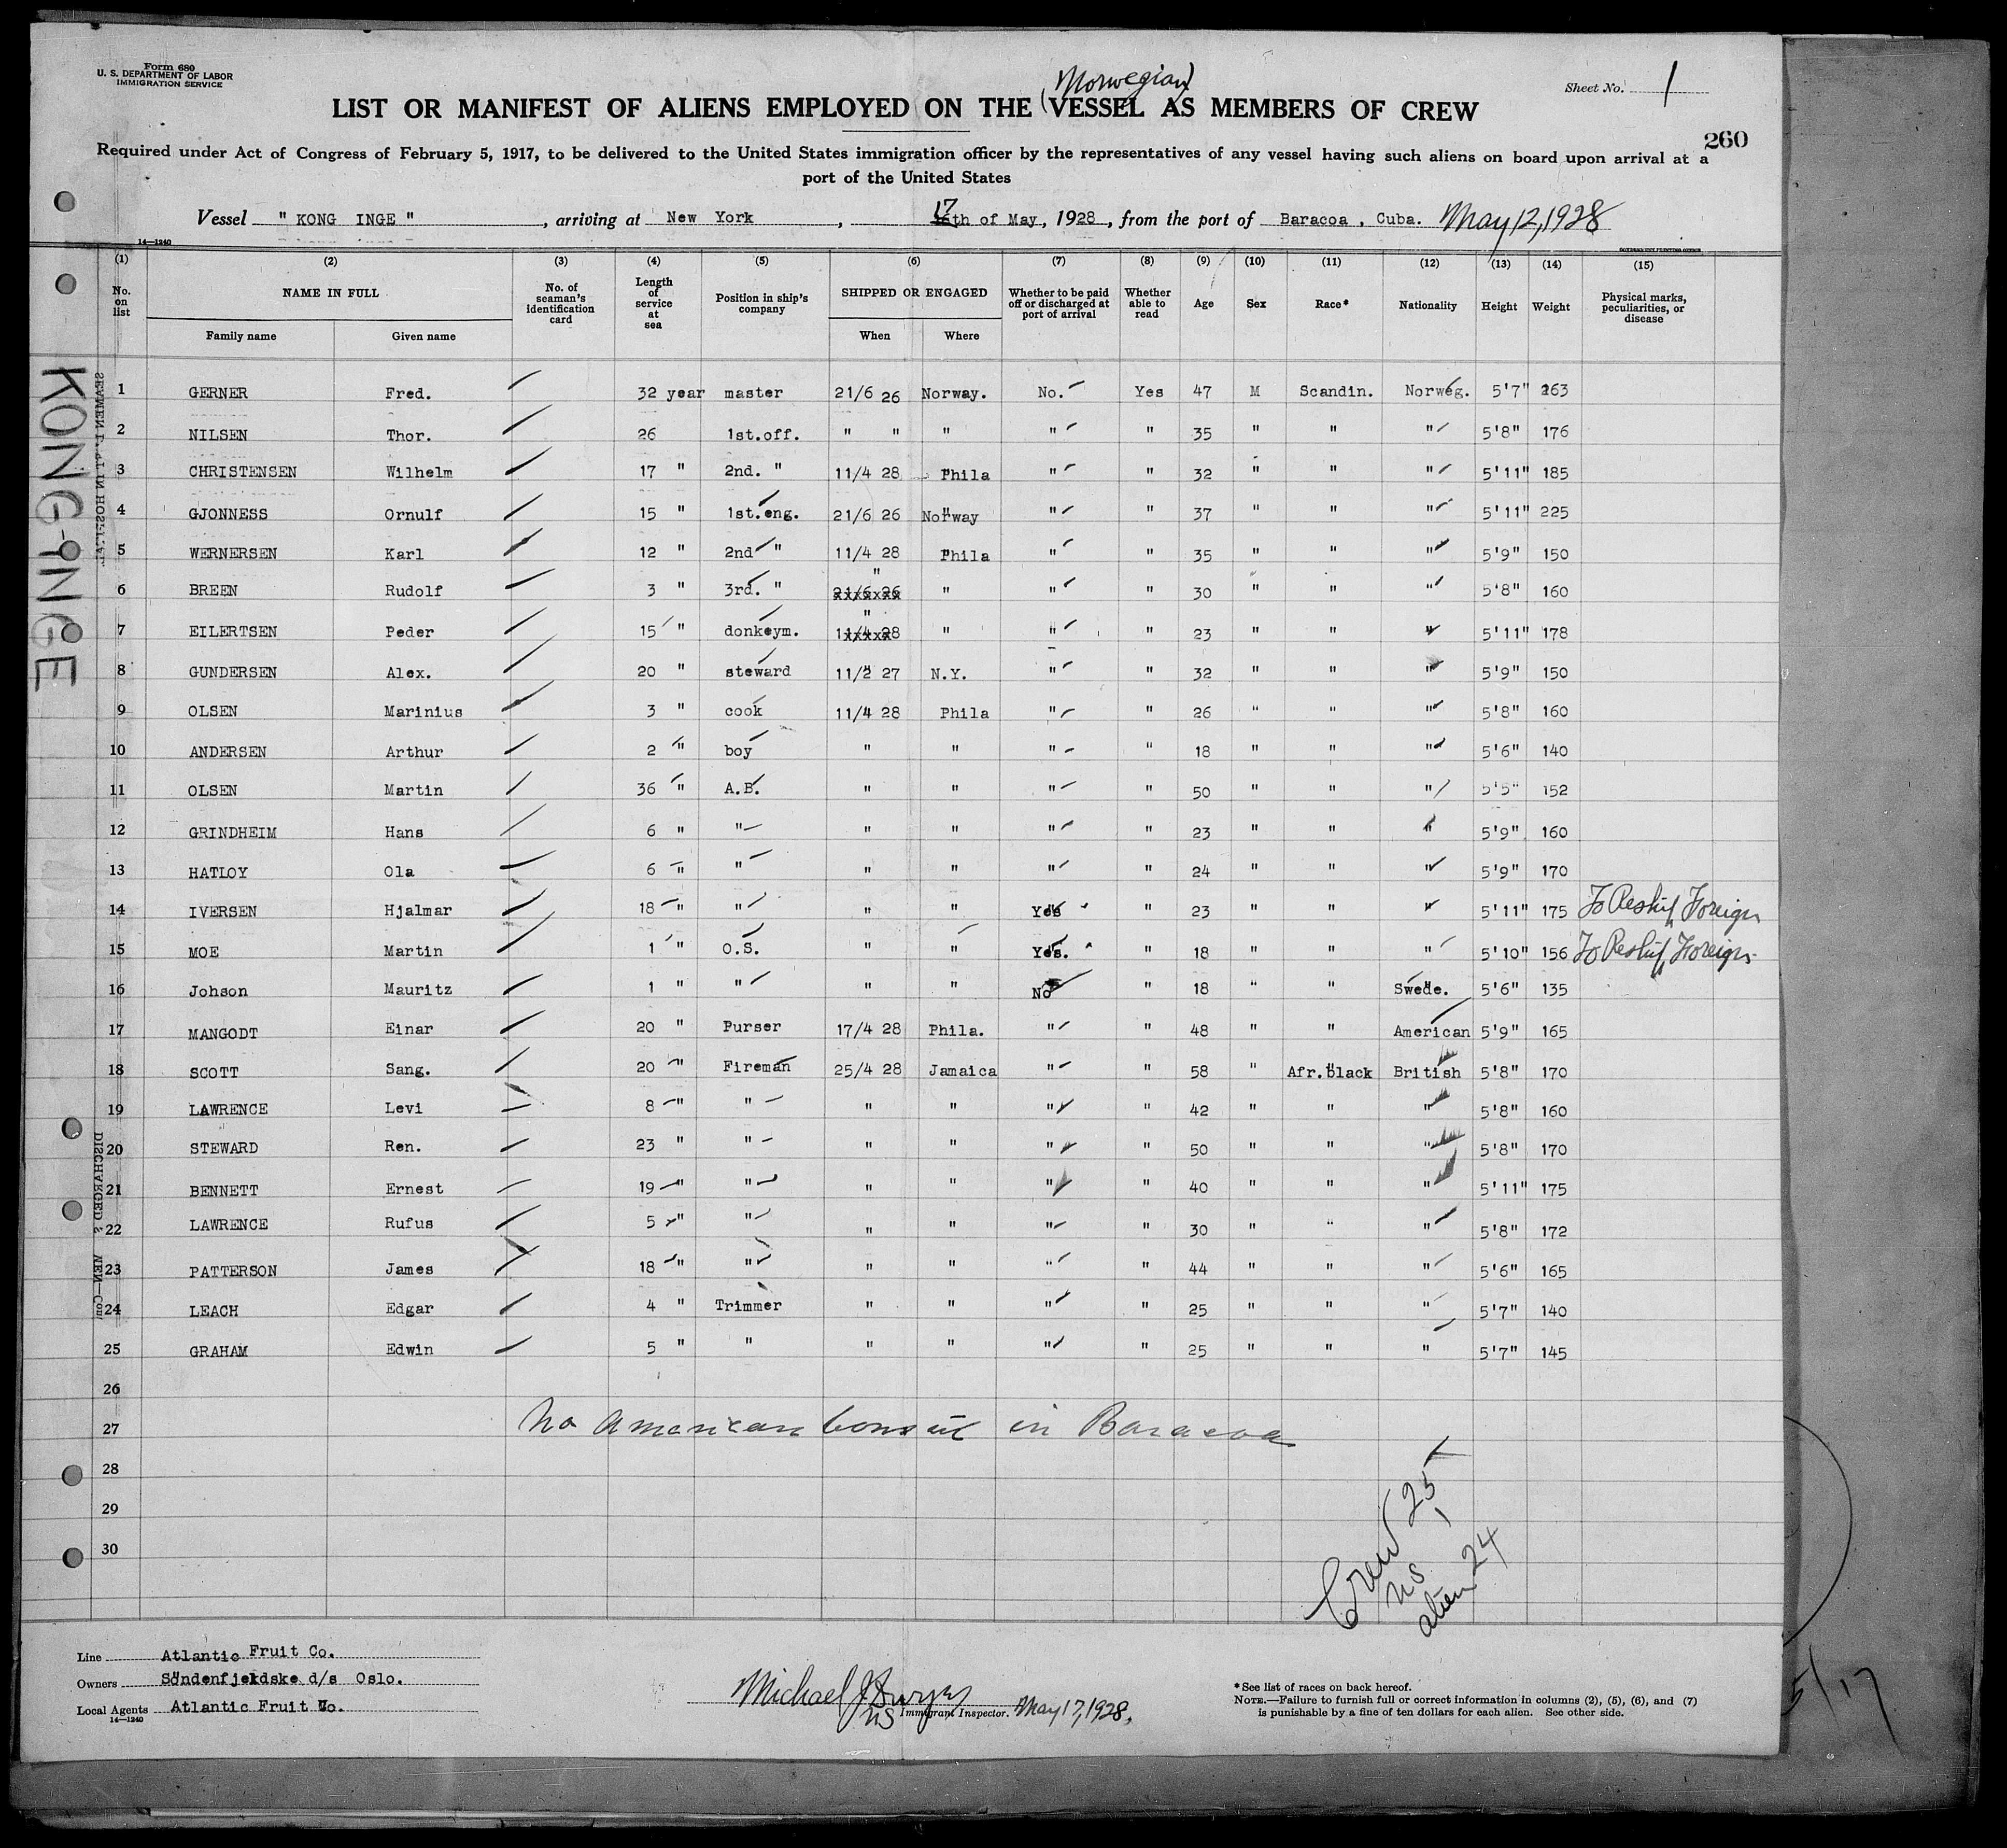 Form 680
U. S. DEPARTMENT OF LABOR
IMMIGRATION SERVICE
Sheet No. 1
(Norwegian)
LIST OR MANIFEST OF ALIENS EMPLOYED ON THE VESSEL AS MEMBERS OF CREW
260
Required under Act of Congress of February 5, 1917, to be delivered to the United States immigration officer by the representatives of any vessel having such aliens on board upon arrival at a
port of the United States
Vessel " KONG INGE " , arriving at New York , 17th of May, 1928, from the port of Baracoa, Cuba. May 12, 1928
14—1240
GOVERNMENT PRINTING OFFICE
(1) (2) (3) (4) (5) (6) (7) (8) (9) (10) (11) (12) (13) (14) (15)
No. on list NAME IN FULL No. of seaman's identification card Length of service at sea Position in ship's company SHIPPED OR ENGAGED Whether to be paid off or discharged at port of arrival Whether able to read Age Sex Race* Nationality Height Weight Physical marks, peculiarities, or disease
Family name Given name When Where
1 GERNER Fred. 32 year master 21/6 26 Norway. No. Yes 47 M Scandin. Norweg. 5'7" 263
2 NILSEN Thor. 26 1st.off. " " " " " 35 " " " 5'8" 176
3 CHRISTENSEN Wilhelm 17 " 2nd. " 11/4 28 Phila " " 32 " " " 5'11" 185
4 GJONNESS Ornulf 15 " 1st.eng. 21/6 26 Norway " " 37 " " " 5'11" 225
5 WERNERSEN Karl 12 " 2nd " 11/4 28 Phila " " 35 " " " 5'9" 150
6 BREEN Rudolf 3 " 3rd. " " 21/6 26 " " " 30 " " " 5'8" 160
7 EILERTSEN Peder 15 " donkeym. " 11/4 28 " " " 23 " " " 5'11" 178
8 GUNDERSEN Alex. 20 " steward 11/2 27 N.Y. " " 32 " " " 5'9" 150
9 OLSEN Marinius 3 " cook 11/4 28 Phila " " 26 " " " 5'8" 160
10 ANDERSEN Arthur 2 " boy " " " " 18 " " " 5'6" 140
11 OLSEN Martin 36 " A.B. " " " " 50 " " " 5'5" 152
12 GRINDHEIM Hans 6 " " " " " " 23 " " " 5'9" 160
13 HATLOY Ola 6 " " " " " " 24 " " " 5'9" 170
14 IVERSEN Hjalmar 18 " " " " Yes " 23 " " " 5'11" 175 To Reship Foreign
15 MOE Martin 1 " O.S. " " Yes. " 18 " " " 5'10" 156 To Reship Foreign
16 Johson Mauritz 1 " " " " No " 18 " " Swede. 5'6" 135
17 MANGODT Einar 20 " Purser 17/4 28 Phila. " " 48 " " American 5'9" 165
18 SCOTT Sang. 20 " Fireman 25/4 28 Jamaica " " 58 " Afr.black British 5'8" 170
19 LAWRENCE Levi 8 " " " " " " 42 " " " 5'8" 160
20 STEWARD Ren. 23 " " " " " " 50 " " " 5'8" 170
21 BENNETT Ernest 19 " " " " " " 40 " " " 5'11" 175
22 LAWRENCE Rufus 5 " " " " " " 30 " " " 5'8" 172
23 PATTERSON James 18 " " " " " " 44 " " " 5'6" 165
24 LEACH Edgar 4 " Trimmer " " " " 25 " " " 5'7" 140
25 GRAHAM Edwin 5 " " " " " " 25 " " " 5'7" 145
26
27 No American Consul in Baracoa
28
29
30
Crew 25
US 1
alien 24
KONG-INGE
Line Atlantic Fruit Co.
Owners Söndenfjeldske d/s Oslo.
Local Agents Atlantic Fruit Co.
14—1240
Michael J Dwyer
US Immigrant Inspector. May 17, 1928.
*See list of races on back hereof.
NOTE.—Failure to furnish full or correct information in columns (2), (5), (6), and (7)
is punishable by a fine of ten dollars for each alien. See other side.
5/17